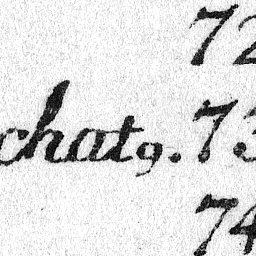 72
chat9. 73
74